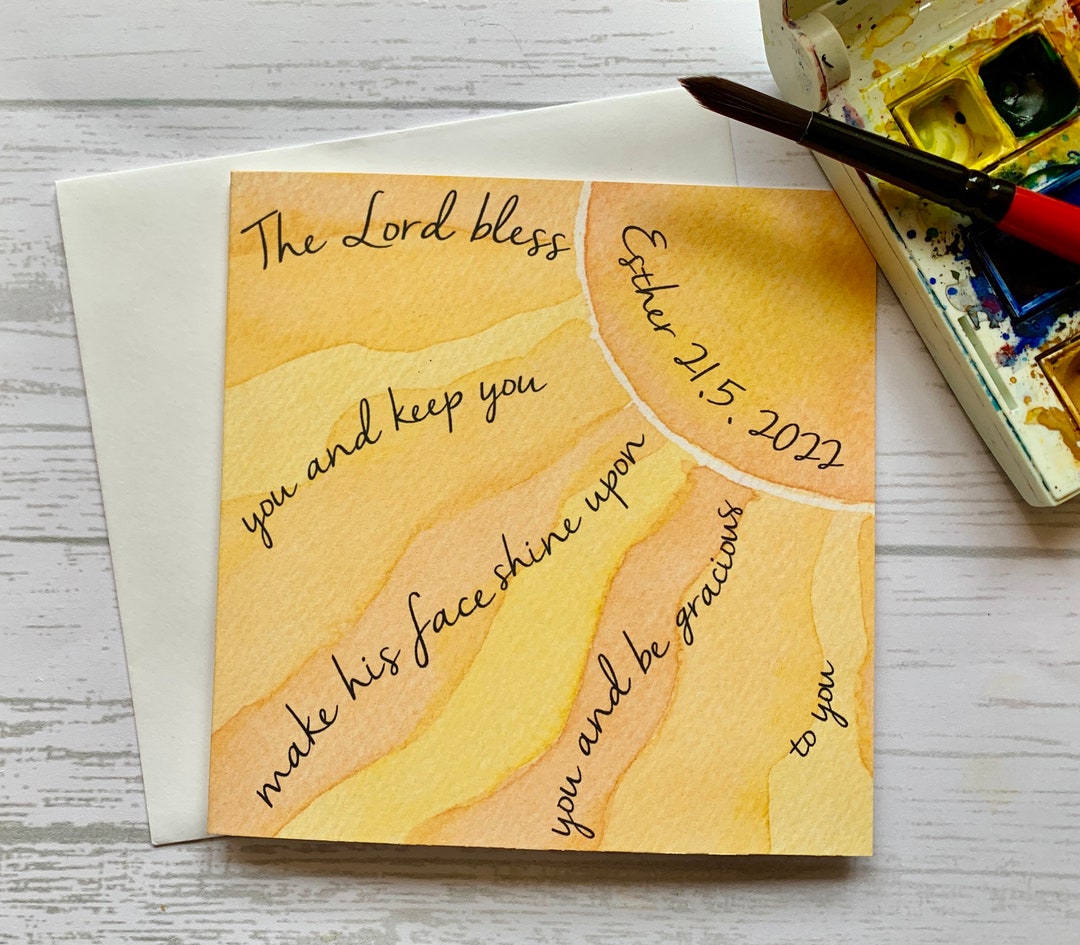 The Lord bless
Esther 21.5.2022
you and keep you
make his face shine upon
you and be gracious
to you